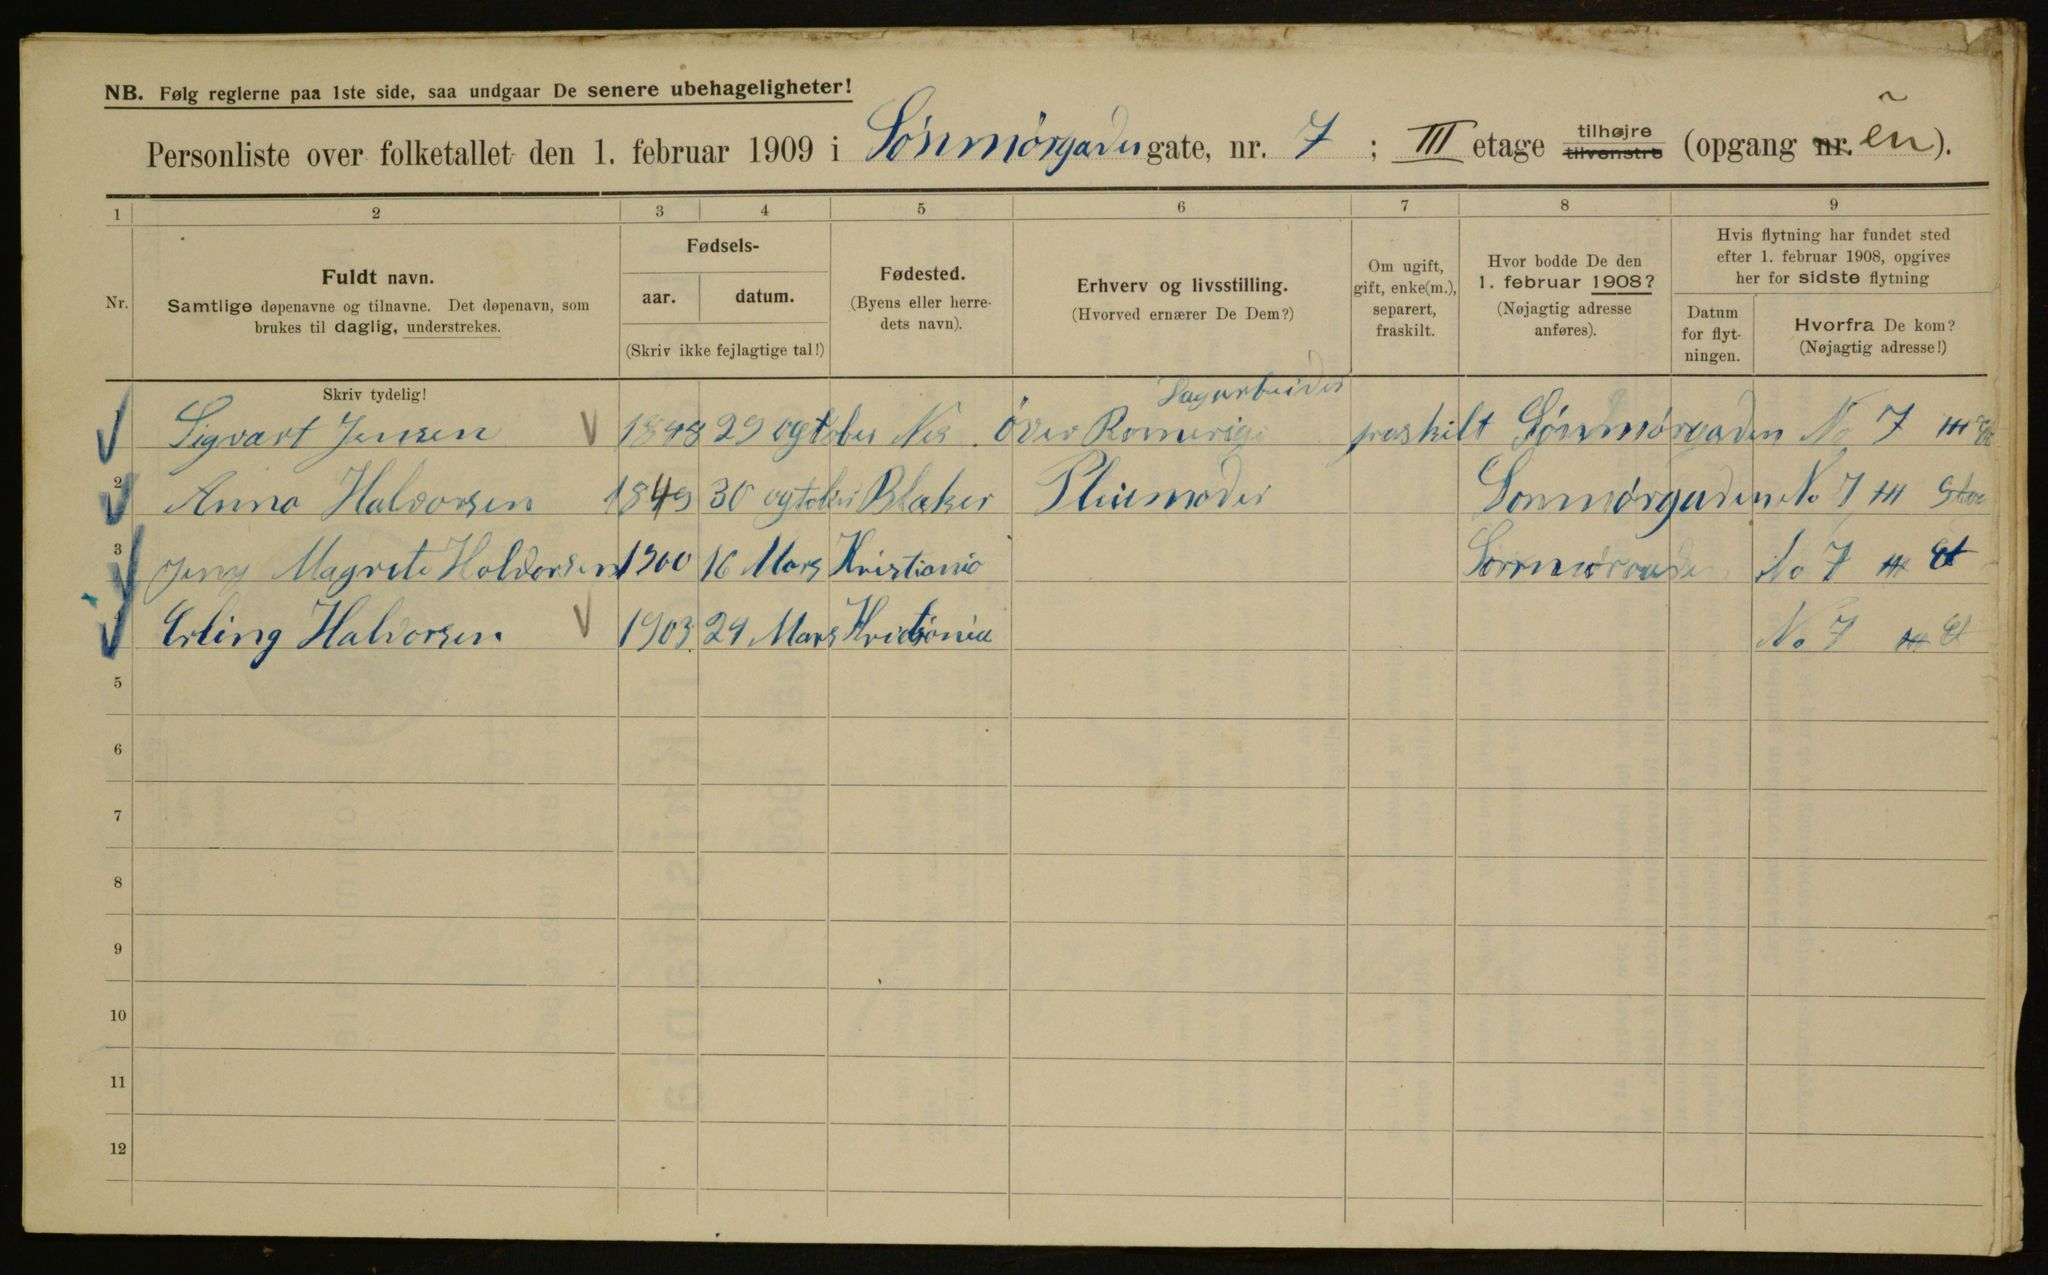 NB. Følg reglerne paa 1ste side, saa undgaar De senere ubehageligheter!
Personliste over folketallet den 1. februar 1909 i Sönmörgaden gate, nr. 7 ; III etage tilhøjre tilvenstre (opgang nr. en).
1 2 3 4 5 6 7 8 9
Nr.
Fuldt navn.
Samtlige døpenavne og tilnavne. Det døpenavn, som
brukes til daglig, understrekes.
Fødsels-
aar. datum.
(Skriv ikke fejlagtige tal!)
Fødested.
(Byens eller herre-
dets navn).
Erhverv og livsstilling.
(Hvorved ernærer De Dem?)
Om ugift,
gift, enke(m.),
separert,
fraskilt.
Hvor bodde De den
1. februar 1908?
(Nøjagtig adresse
anføres).
Hvis flytning har fundet sted
efter 1. februar 1908, opgives
her for sidste flytning
Datum
for flyt-
ningen.
Hvorfra De kom?
(Nøjagtig adresse!)
Skriv tydelig!
Sagarbeider
1 Sigvart Jensen 1848 29 ogtober Nes Över Romerige fraskilt Sönmörgaden No 7 III Et
2 Anna Halvorsen 1849 30 ogtober Blaker Pleiemoder Sonmörgaden No 7 III
3 Jeny Magrete Halvorsen 1900 16 Mars Kristiania No 7 III Et
4 Erling Halvorsen 1903 24 Mars Kristiania No 7 III Et
5
6
7
8
9
10
11
12